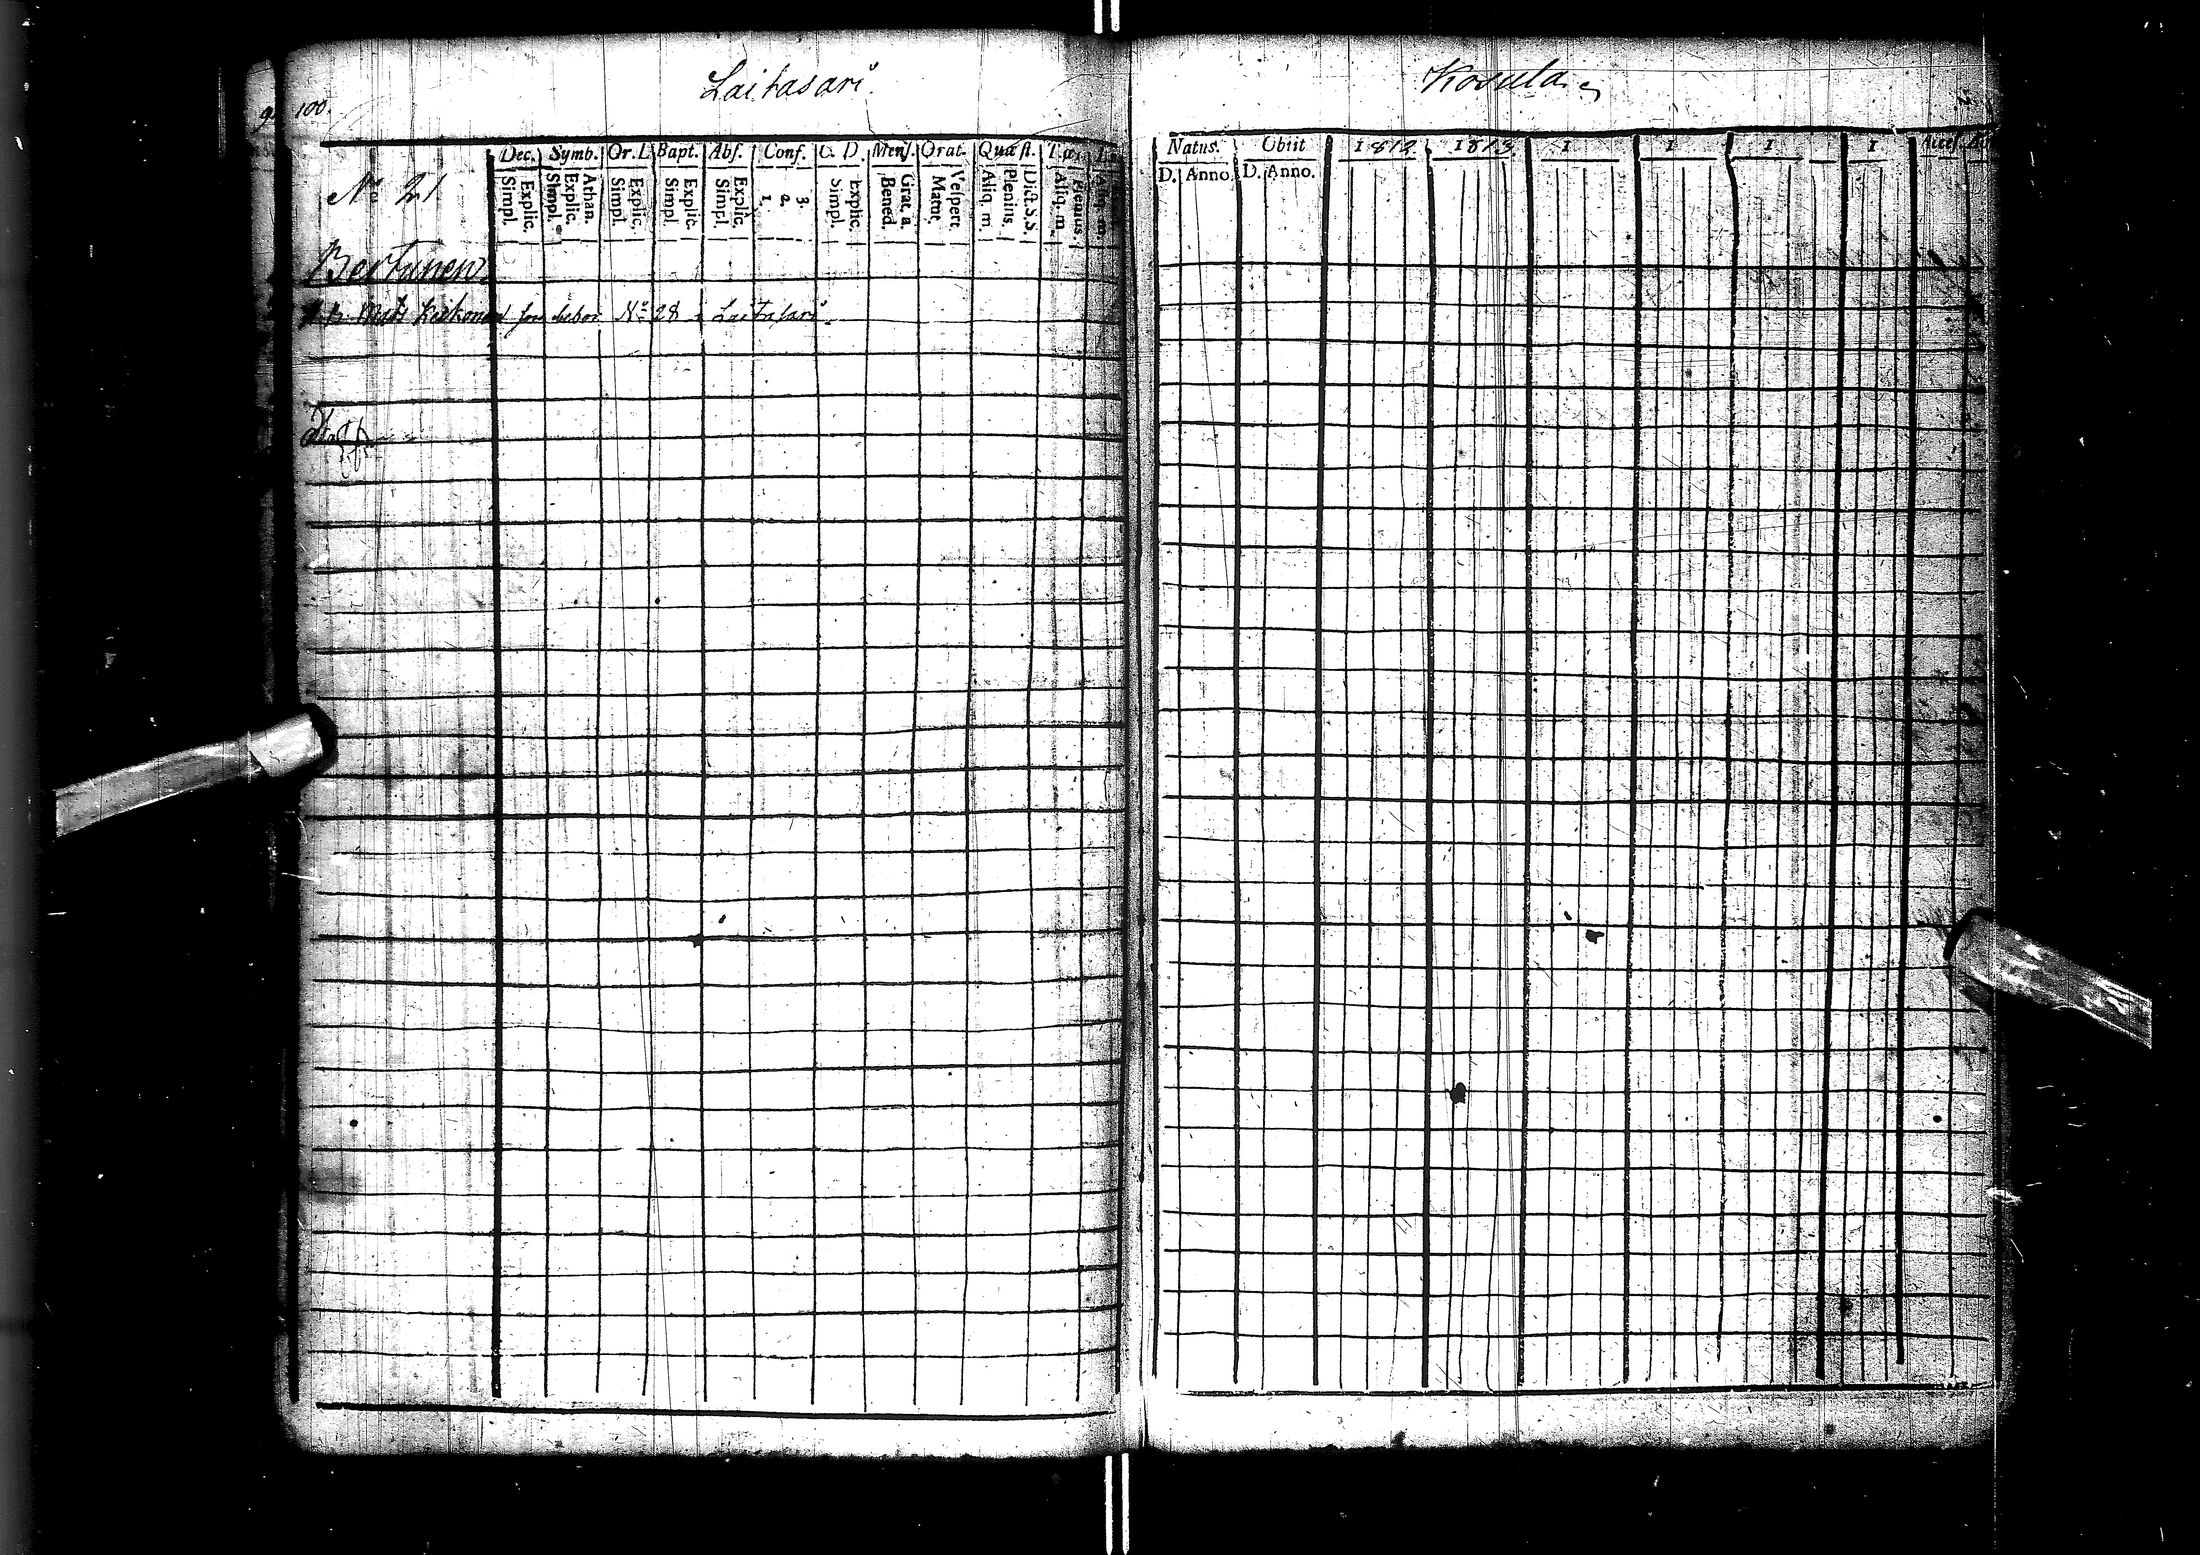 Laitasari
Kosula
100.
Dec. Symb. Or. D. Bapt. Abs. Conf. C. D. Mens. Orat. Quæst.
Natus. Obiit 1812. 1813. 1 1 1 1
D. Anno D. Anno.
No 21
Simpl. Explic. Simpl. Explic. Athan. Simpl. Explic. Simpl. Explic. Simpl. Explic. 1. 2. 3. Simpl. Explic. Bened. Grat. a. Matut. Vespert. Aliq. m. Plenius. Dict. S.S. Aliq. m. Plenius Aliq. m.
Bertunen
Matts Keikonen No 28 i Laitasari